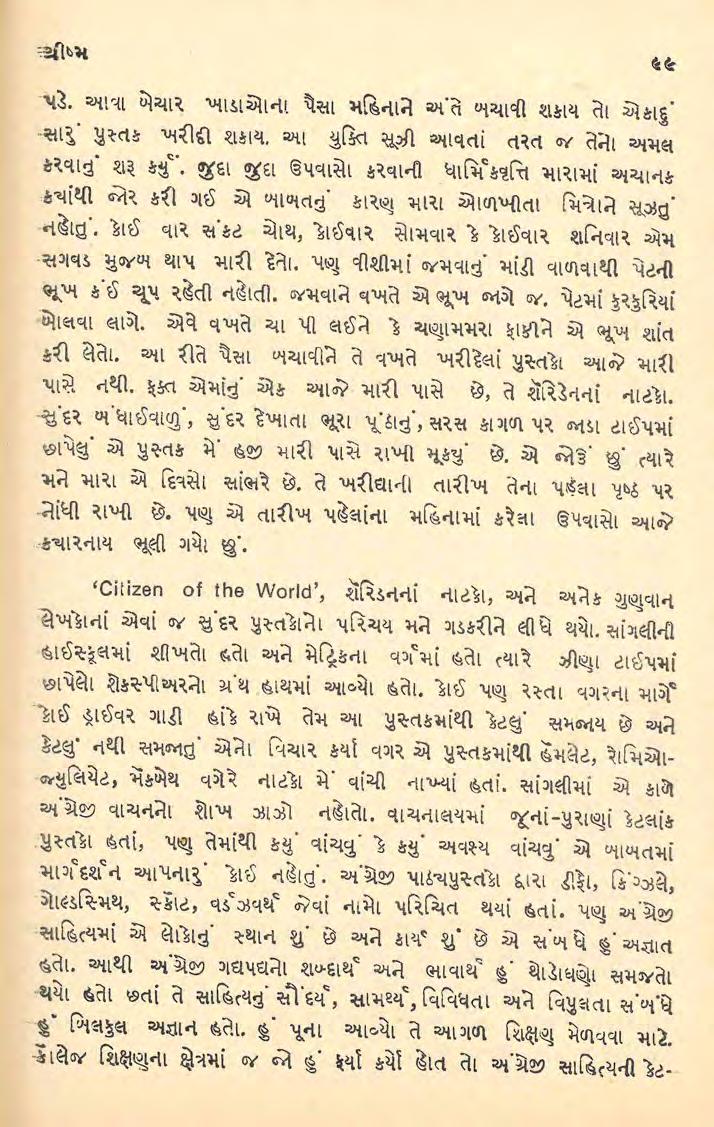 ગ્રીષ્મ
૯૯
પડે. આવા બેચાર ખાડાઓના પૈસા મહિનાને અંતે બચાવી શકાય તો એકાદું
સારું પુસ્તક ખરીદી શકાય. આ યુક્તિ સૂઝી આવતાં તરત જ તેનો અમલ
કરવાનું શરૂ કર્યું. જુદા જુદા ઉપવાસો કરવાની ધાર્મિકવૃત્તિ મારામાં અચાનક
ક્યાંથી જોર કરી ગઈ એ બાબતનું કારણ મારા ઓળખીતા મિત્રોને સૂઝતું
નહોતું. કોઈ વાર સંકટ ચોથ, કોઈવાર સોમવાર કે કોઈવાર શનિવાર એમ
સગવડ મુજબ થાપ મારી દેતો. પણ વીશીમાં જમવાનું માંડી વાળવાથી પેટની
ભૂખ કંઈ ચૂપ રહેતી નહોતી. જમવાને વખતે એ ભૂખ જાગે જ. પેટમાં કુરકુરિયાં
બોલવા લાગે. એવે વખતે ચા પી લઈને કે ચણામમરા ફાકીને એ ભૂખ શાંત
કરી લેતો. આ રીતે પૈસા બચાવીને તે વખતે ખરીદેલાં પુસ્તકો આજે મારી
પાસે નથી. ફક્ત એમાંનું એક આજે મારી પાસે છે, તે શૅરિડેનનાં નાટકો.
સુંદર બંધાઈવાળું, સુંદર દેખાતા ભૂરા પૂંઠાનું, સરસ કાગળ પર જાડા ટાઈપમાં
છાપેલું એ પુસ્તક મેં હજી મારી પાસે રાખી મૂક્યું છે. એ જોઉં છું ત્યારે
મને મારા એ દિવસો સાંભરે છે. તે ખરીદ્યાની તારીખ તેના પહેલા પૃષ્ઠ પર
નોંધી રાખી છે. પણ એ તારીખ પહેલાંના મહિનામાં કરેલા ઉપવાસો આજે
ક્યારનાય ભૂલી ગયો છું.
‘Citizen of the World’, શૅરિડનનાં નાટકો, અને અનેક ગુણવાન
લેખકોનાં એવાં જ સુંદર પુસ્તકોનો પરિચય મને ગડકરીને લીધે થયો. સાંગલીની
હાઈસ્કૂલમાં શીખતો હતો અને મેટ્રિકના વર્ગમાં હતો ત્યારે ઝીણા ટાઈપમાં
છાપેલો શેક્સપીઅરનો ગ્રંથ હાથમાં આવ્યો હતો. કોઈ પણ રસ્તા વગરના માર્ગે
કોઈ ડ્રાઈવર ગાડી હાંકે રાખે તેમ આ પુસ્તકમાંથી કેટલું સમજાય છે અને
કેટલું નથી સમજાતું એનો વિચાર કર્યા વગર એ પુસ્તકમાંથી હૅમલેટ, રોમિઓ-
જ્યુલિયેટ, મૅકબેથ વગેરે નાટકો મેં વાંચી નાખ્યાં હતાં. સાંગલીમાં એ કાળે
અંગ્રેજી વાચનનો શોખ ઝાઝો નહોતો. વાચનાલયમાં જૂનાં-પુરાણાં કેટલાંક
પુસ્તકો હતાં, પણ તેમાંથી કયું વાંચવું કે કયું અવશ્ય વાંચવું એ બાબતમાં
માર્ગદર્શન આપનારું કોઈ નહોતું. અંગ્રેજી પાઠ્યપુસ્તકો દ્વારા ડીફો, કિંગ્ઝલે,
ગોલ્ડસ્મિથ, સ્કૉટ, વર્ડઝવર્થ જેવાં નામો પરિચિત થયાં હતાં. પણ અંગ્રેજી
સાહિત્યમાં એ લોકોનું સ્થાન શું છે અને કાર્ય શું છે એ સંબંધે હું અજ્ઞાત
હતો. આથી અંગ્રેજી ગદ્યપદ્યનો શબ્દાર્થ અને ભાવાર્થ હું થોડોઘણો સમજતો
થયો હતો છતાં તે સાહિત્યનું સૌંદર્ય, સામર્થ્ય, વિવિધતા અને વિપુલતા સંબંધે
હું બિલકુલ અજ્ઞાન હતો. હું પૂના આવ્યો તે આગળ શિક્ષણ મેળવવા માટે.
કૉલેજ શિક્ષણના ક્ષેત્રમાં જ જો હું ફર્યા કર્યો હોત તો અંગ્રેજી સાહિત્યની કેટ-